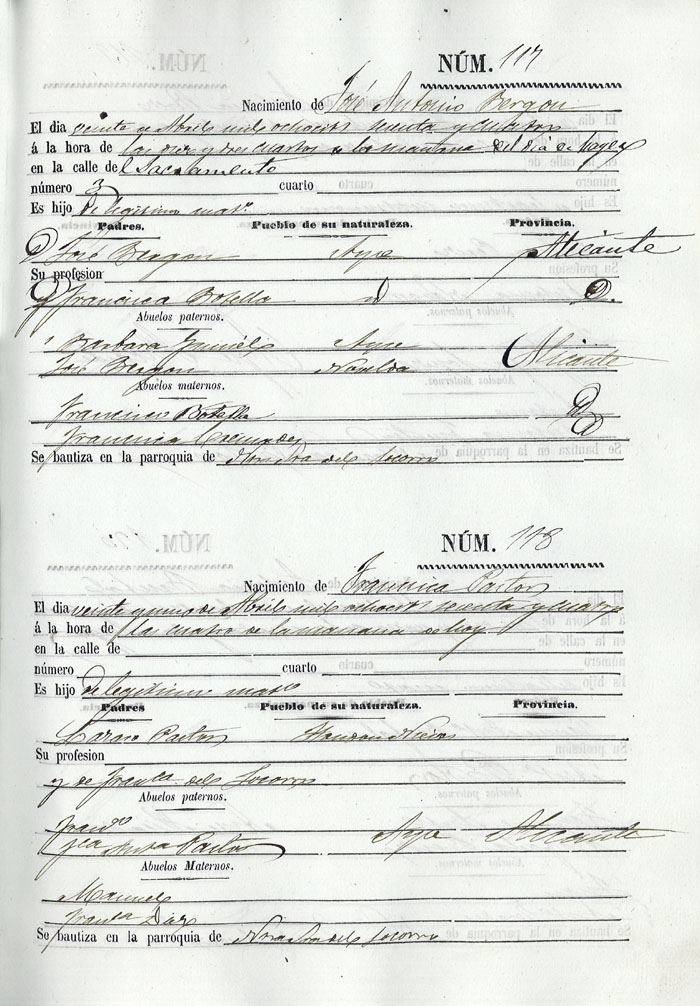 NÚM. 117
Nacimiento de José Antonio Bergon
El día veinte de Abril mil ochocits sesenta y cuatro
á la hora de las diez y tres cuartos de la mañana del dia de hoy
en la calle del Sacramento
número 3 cuarto
Es hijo de legitimo mato.
Padres. Pueblo de su naturaleza. Provincia.
D José Bergon Aspe Alicante
Su profesion
y Francisca Botella d D.
Abuelos paternos.
Barbara Aspe
José Bergon Novelda Alicante
Abuelos maternos.
Francisco Botella D
Francisca D
Se bautiza en la parroquia de Ntra Sra del Socorro
NÚM. 118
Nacimiento de Francisca Pastor
El día veinte y uno de Abril mil ochocits sesenta y cuatro
á la hora de las cuatro de la mañana de hoy
en la calle de
número cuarto
Es hijo de legitimo mato
Padres Pueblo de su naturaleza. Provincia.
Pastor
Su profesion
y de Franca del Socorro
Abuelos paternos.
Franco
Pastor Aspe Alicante
Abuelos Maternos.
Manuel
Franca Diaz
Se bautiza en la parroquia de Ntra Sra del Socorro